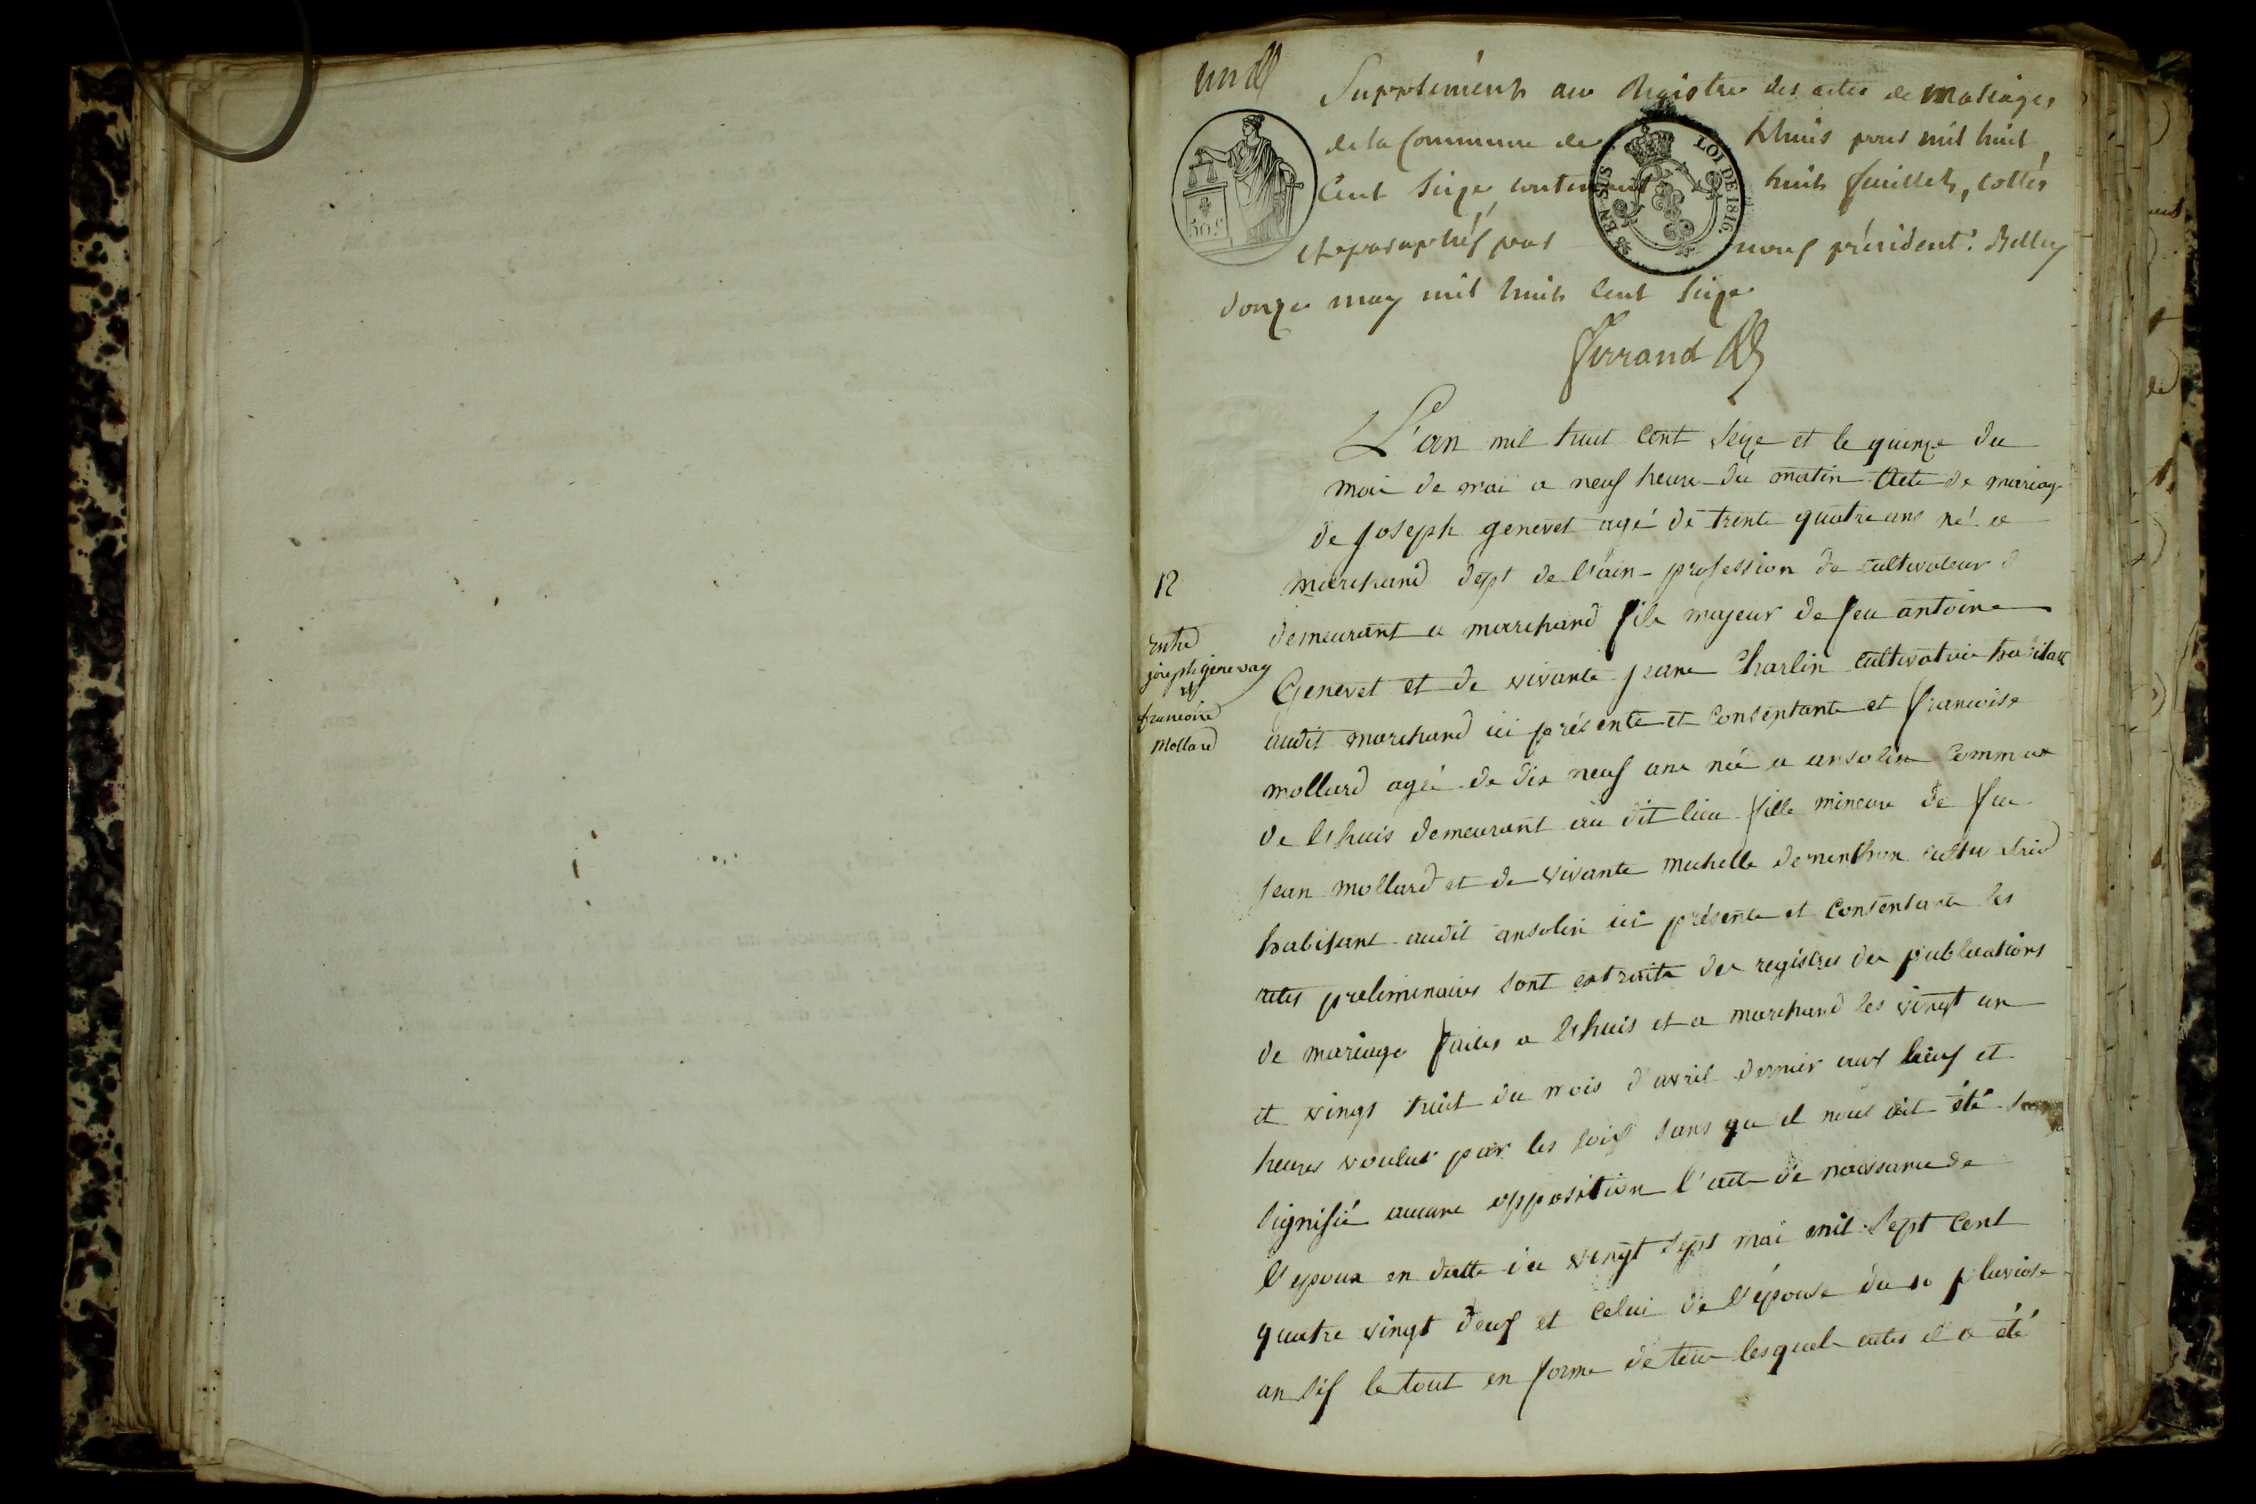 un
Supplément au Registre des actes de mariages
de la Commune de Lhuis pour mil huit
Cent Seize, contenant huit feuillets, cottés
et paraphés par nous président. Belley
douze may mil huit Cent Seize
Ferrand
50 C
EN SUS
LOI DE 1816.
L'an mil huit cent seize et le quinze du
moi de mai a neuf heure du matin Acte de mariage
de joseph genevet agé de trente quatre ans né a
marchand dept de l'ain profession de cultivateur
demeurant a marchand fils majeur de feu antoine
Genevet et de vivante jeane Charlin cultivatrice habitant
audit marchand ici présente et consentante et francoise
mollard agée de dix neuf ans née a ansolin commune
de lhuis demeurant au dit lieu fille mineure de feu
jean mollard et de vivante michelle dementhon
habitant audit ansolin ici présente et consentante les
actes preliminaires sont extraits des registres des publications
de mariage faites a lhuis et a marchand les vingt un
et vingt huit du mois d'avril dernier aux lieus et
heures voulus par les lois sans qu il nous ait été
signifié aucune opposition l'acte de naissance de
l'epoux en datte du vingt sept mai mil sept cent
quatre vingt deux et celui de l'épouse du 10 pluviose
an sif le tout en forme de tous lesquels actes il a été
12
Entre
joseph genevay
et
francoise
Mollard